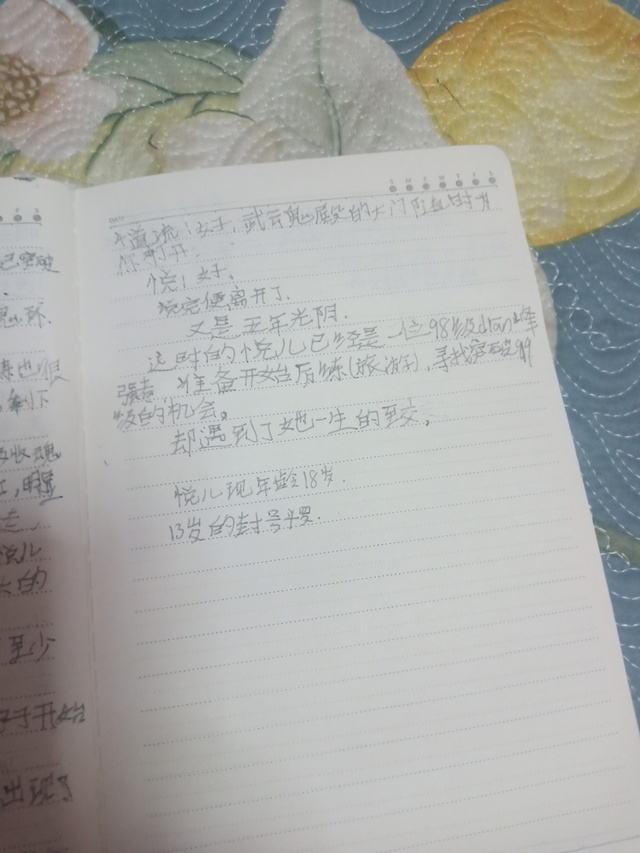 已突破
魂环
练也很
剩下
收魂
走,
悦儿
大的
至少
子开始
出现了
DATE
S M T W T F S
千道流:好,武云魂殿的大门随时为
你打开.
悦儿:好.
说完便离开了.
又是五年光阴.
这时的悦儿已经是一位98级dian峰
强者,准备开始历练(旅游),寻找突破99
级的机会。
却遇到了她一生的至交。
悦儿现年龄18岁.
13岁的封号斗罗.